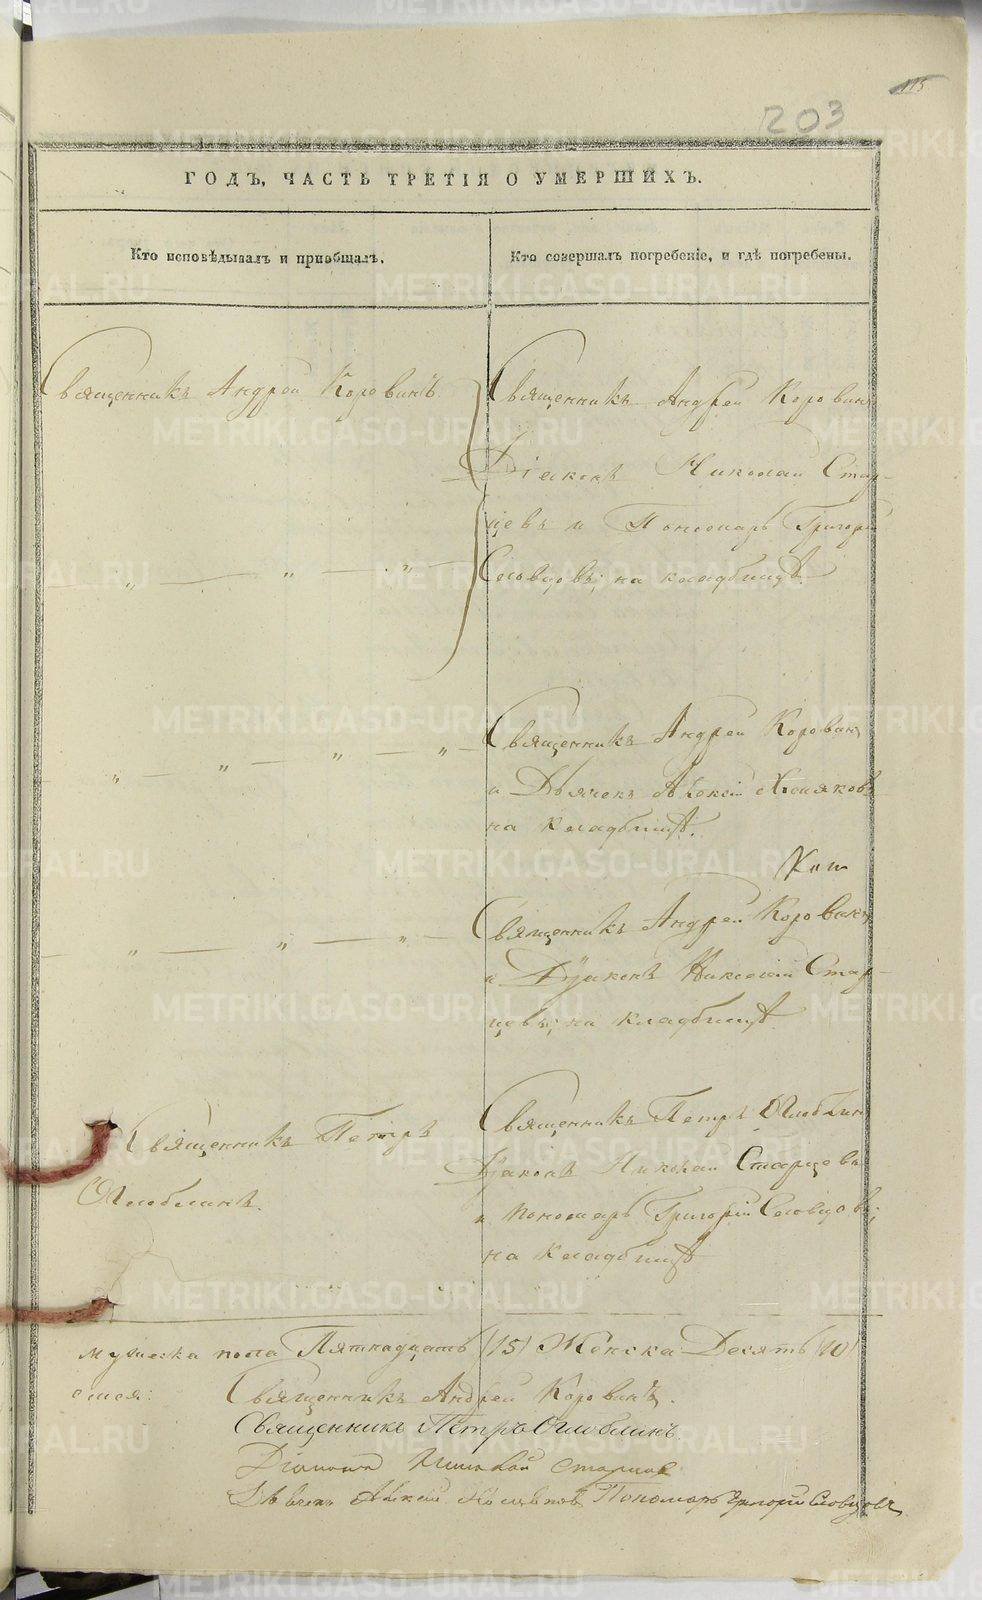 115
203
ГОДЪ, ЧАСТЬ ТРЕТІЯ О УМЕРШИХЪ.
Кто исповѣдывалъ и пріобщалъ.
Кто совершалъ погребеніе, и гдѣ погребены.
Священникъ Андрей Коровинъ
Священникъ Андрей Коровинъ
Діаконъ Николай Стар-
цевъ и Пономарь Григорій
Словцовъ; на кладбищѣ.
„ — „ — „ —
Священникъ Андрей Коровинъ
и Дьячекъ Алексій Хомяковъ
на кладбищѣ.
„ — „ — „ — „ —
Священникъ Андрей Коровинъ
и Діаконъ Николай Стар-
цевъ; на кладбищѣ.
„ — „ — „ —
Священникъ Петръ
Оглоблинъ.
Священникъ Петръ Оглоблинъ
Діаконъ Николай Старцевъ
и Пономарь Григорій Словцовъ;
на кладбищѣ
мужеска пола Пятнадцать (15) Женска Десять (10)
Священникъ Андрей Коровинъ.
Священникъ Петръ Оглоблинъ.
Діаконъ Николай Старцевъ
Дьячекъ Алексій Пономарь Григорій Словцовъ
METRIKI.GASO-URAL.RU